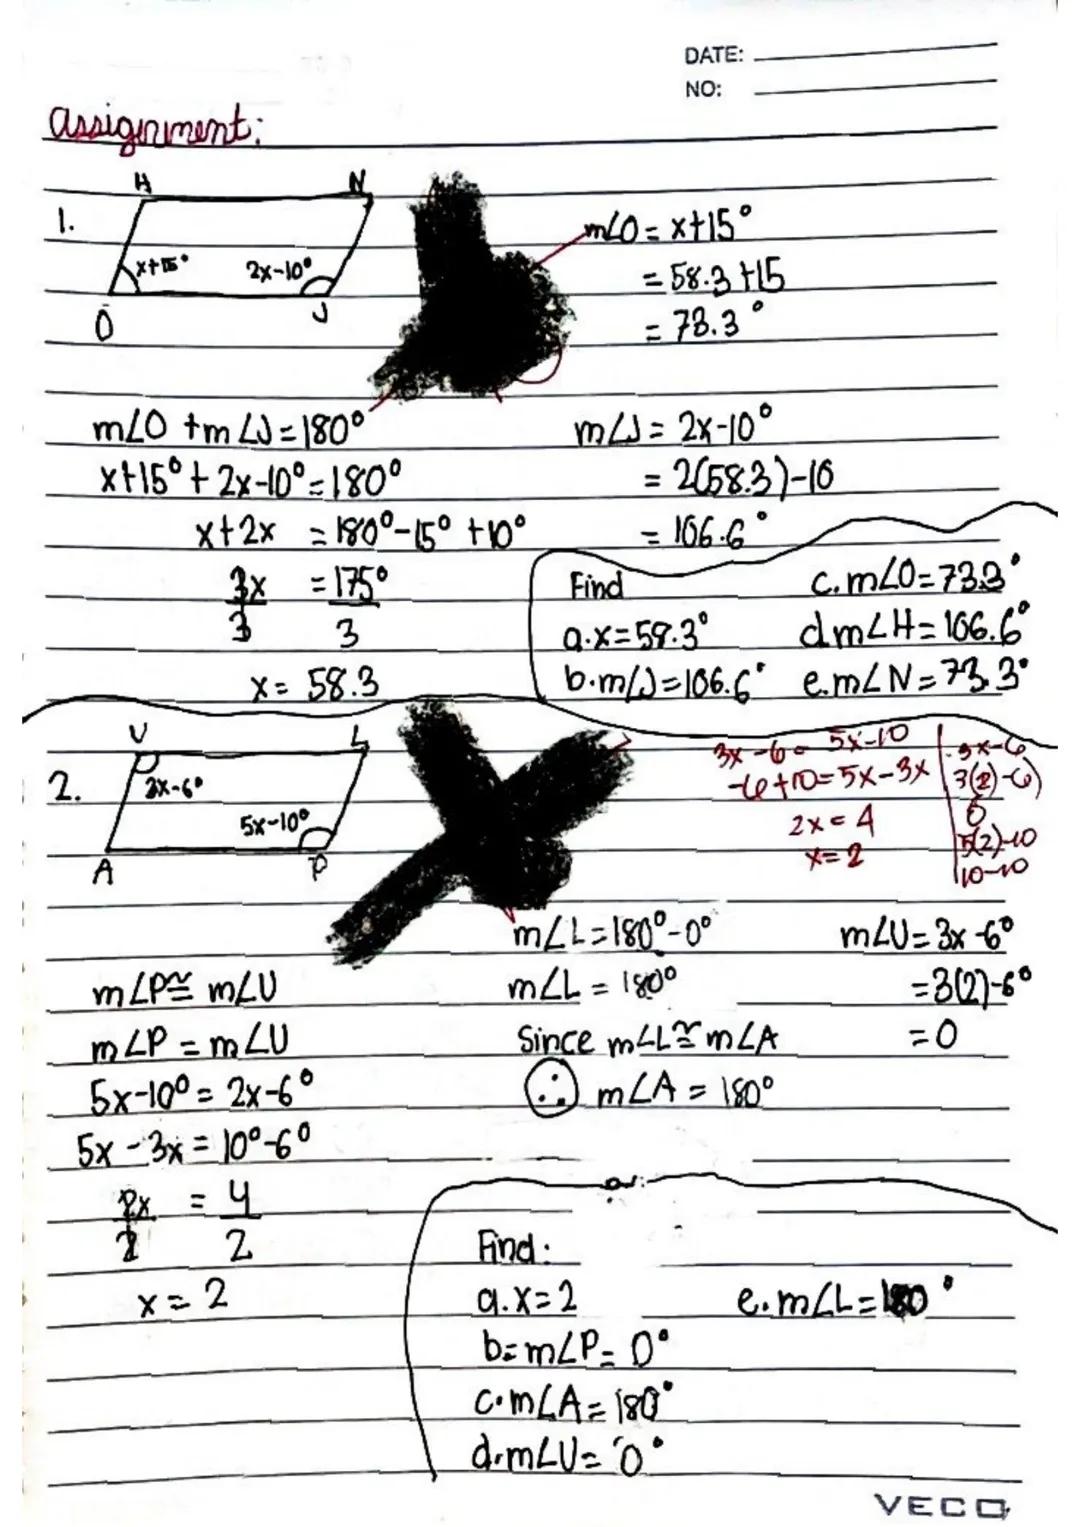 DATE:
NO:
Assignment:
1.
H N
x+15° 2x-10°
O J
m∠O = x+15°
= 58.3+15
= 73.3°
m∠O + m∠J = 180°
x+15° + 2x-10° = 180°
x+2x = 180°-15° +10°
3x = 175°
3 3
x = 58.3
m∠J = 2x-10°
= 2(58.3)-10
= 106.6°
Find
a. x = 58.3°
b. m∠J = 106.6°
c. m∠O = 73.3°
d. m∠H = 106.6°
e. m∠N = 73.3°
2.
U L
3x-6°
5x-10°
A P
3x-6 = 5x-10
-6+10 = 5x-3x
2x = 4
x = 2
3x-6
3(2)-6)
0
5(2)-10
10-10
m∠P ≅ m∠U
m∠P = m∠U
5x-10° = 2x-6°
5x - 3x = 10°-6°
2x = 4
2 2
x = 2
m∠L = 180°-0°
m∠L = 180°
Since m∠L ≅ m∠A
∴ m∠A = 180°
m∠U = 3x-6°
= 3(2)-6°
= 0
Find:
a. x = 2
b = m∠P = 0°
c. m∠A = 180°
d. m∠U = 0°
e. m∠L = 180°
VECO